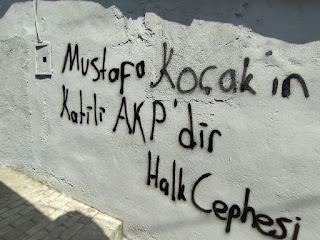 Mustafa Koçak'in
Katili AKP'dir
Halk Cephesi